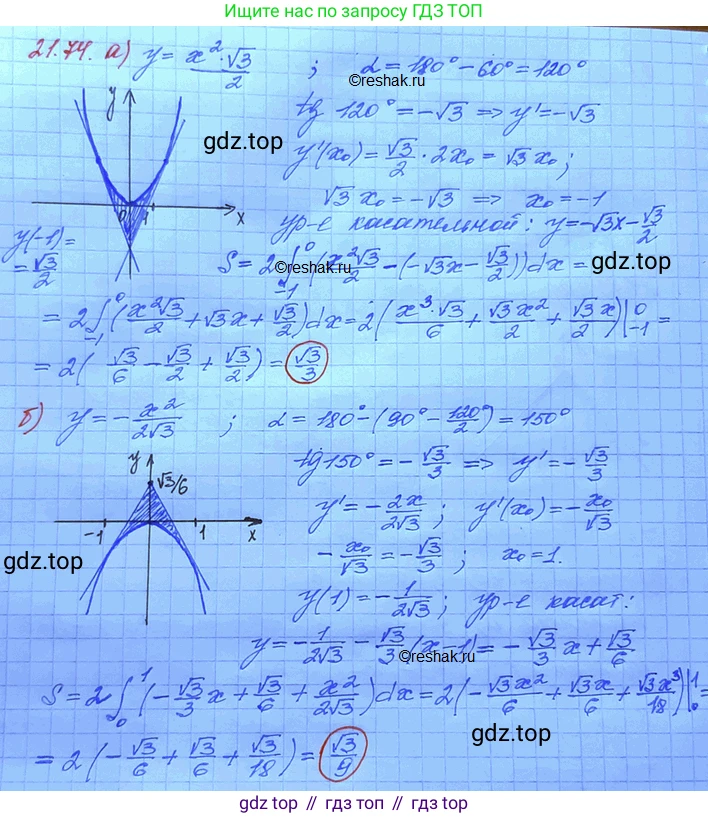 Ищите нас по запросу ГДЗ ТОП
21.74. а) y = x²·√3/2 ; α = 180° − 60° = 120°
©reshak.ru
tg 120° = −√3 => y' = −√3
gdz.top
y'(x₀) = √3/2 · 2x₀ = √3 x₀;
√3 x₀ = −√3 => x₀ = −1
ур-е касательной: y = −√3x − √3/2
y
0 1 x
y(−1) =
= √3/2
S = 2 ∫₋₁⁰ (x²√3/2 − (−√3x − √3/2))dx =
gdz.top
= 2 ∫₋₁⁰ (x²√3/2 + √3x + √3/2)dx = 2(x³·√3/6 + √3x²/2 + √3x/2)|₋₁⁰ =
= 2(√3/6 − √3/2 + √3/2) = √3/3
б) y = −x²/2√3 ; α = 180° − (90° − 120°/2) = 150°
tg 150° = −√3/3 => y' = −√3/3
y
√3/6
−1 1 x
y' = −2x/2√3 ; y'(x₀) = −x₀/√3
gdz.top
−x₀/√3 = −√3/3 ; x₀ = 1.
y(1) = −1/2√3 ; ур-е касат:
y = −1/2√3 − √3/3 (x−1) = −√3/3 x + √3/6
©reshak.ru
S = 2 ∫₀¹ (−√3/3 x + √3/6 + x²/2√3)dx = 2(−√3x²/6 + √3x/6 + √3x³/18)|₀¹ =
gdz.top
= 2(−√3/6 + √3/6 + √3/18) = √3/9
gdz top // гдз топ // gdz.top // гдз топ